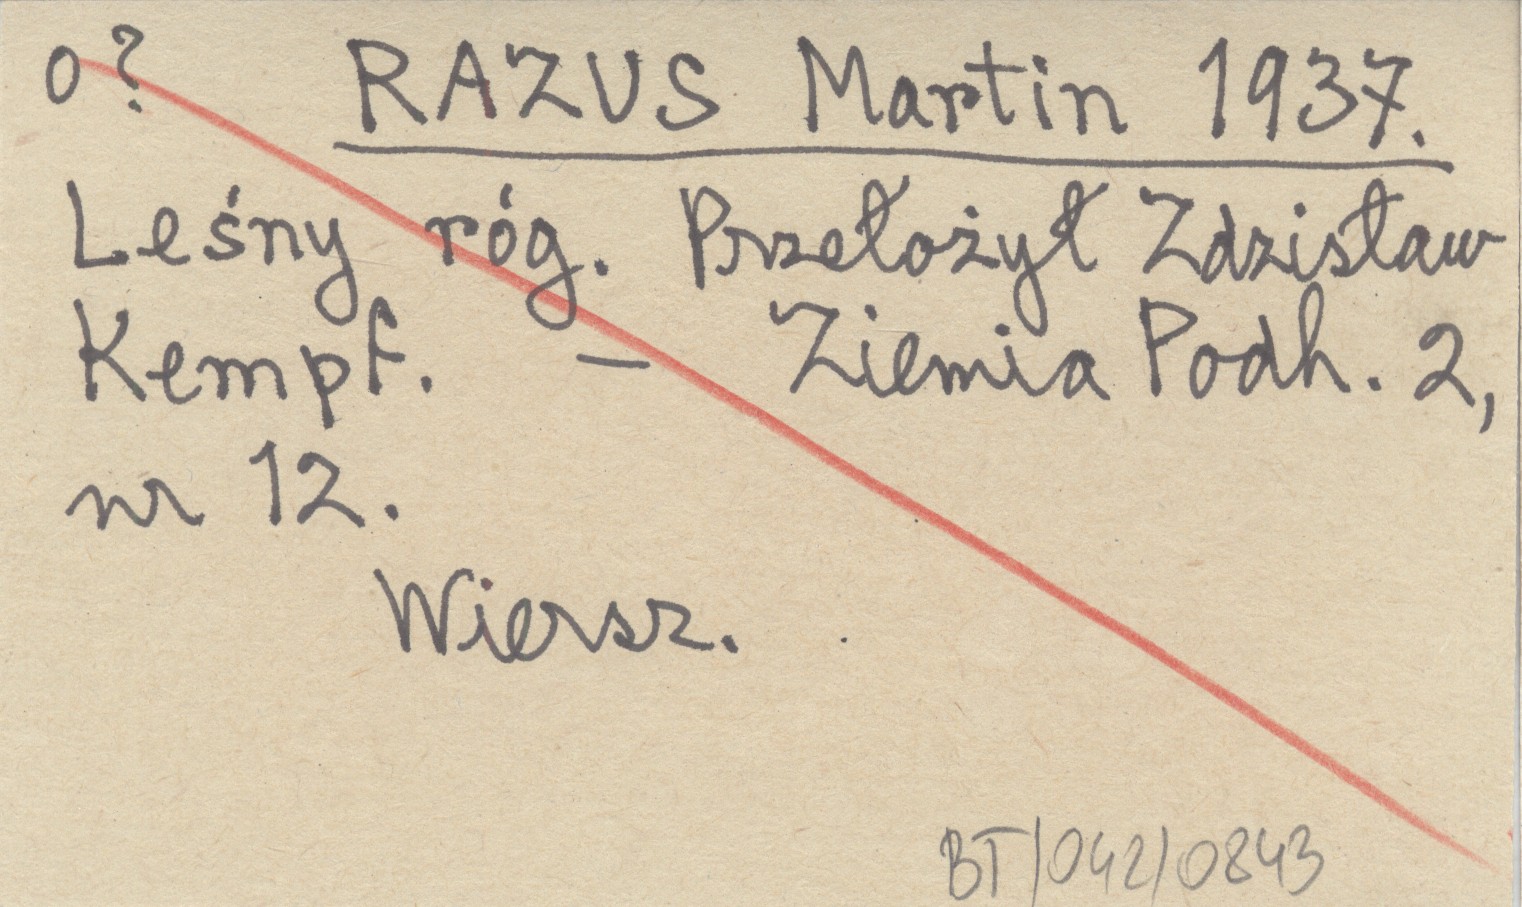 o? RAZUS Martin 1937.
Leśny róg. Przełożył Zdzisław
Kempf. — Ziemia Podh. 2,
nr 12.
Wiersz.
BT/042/0843